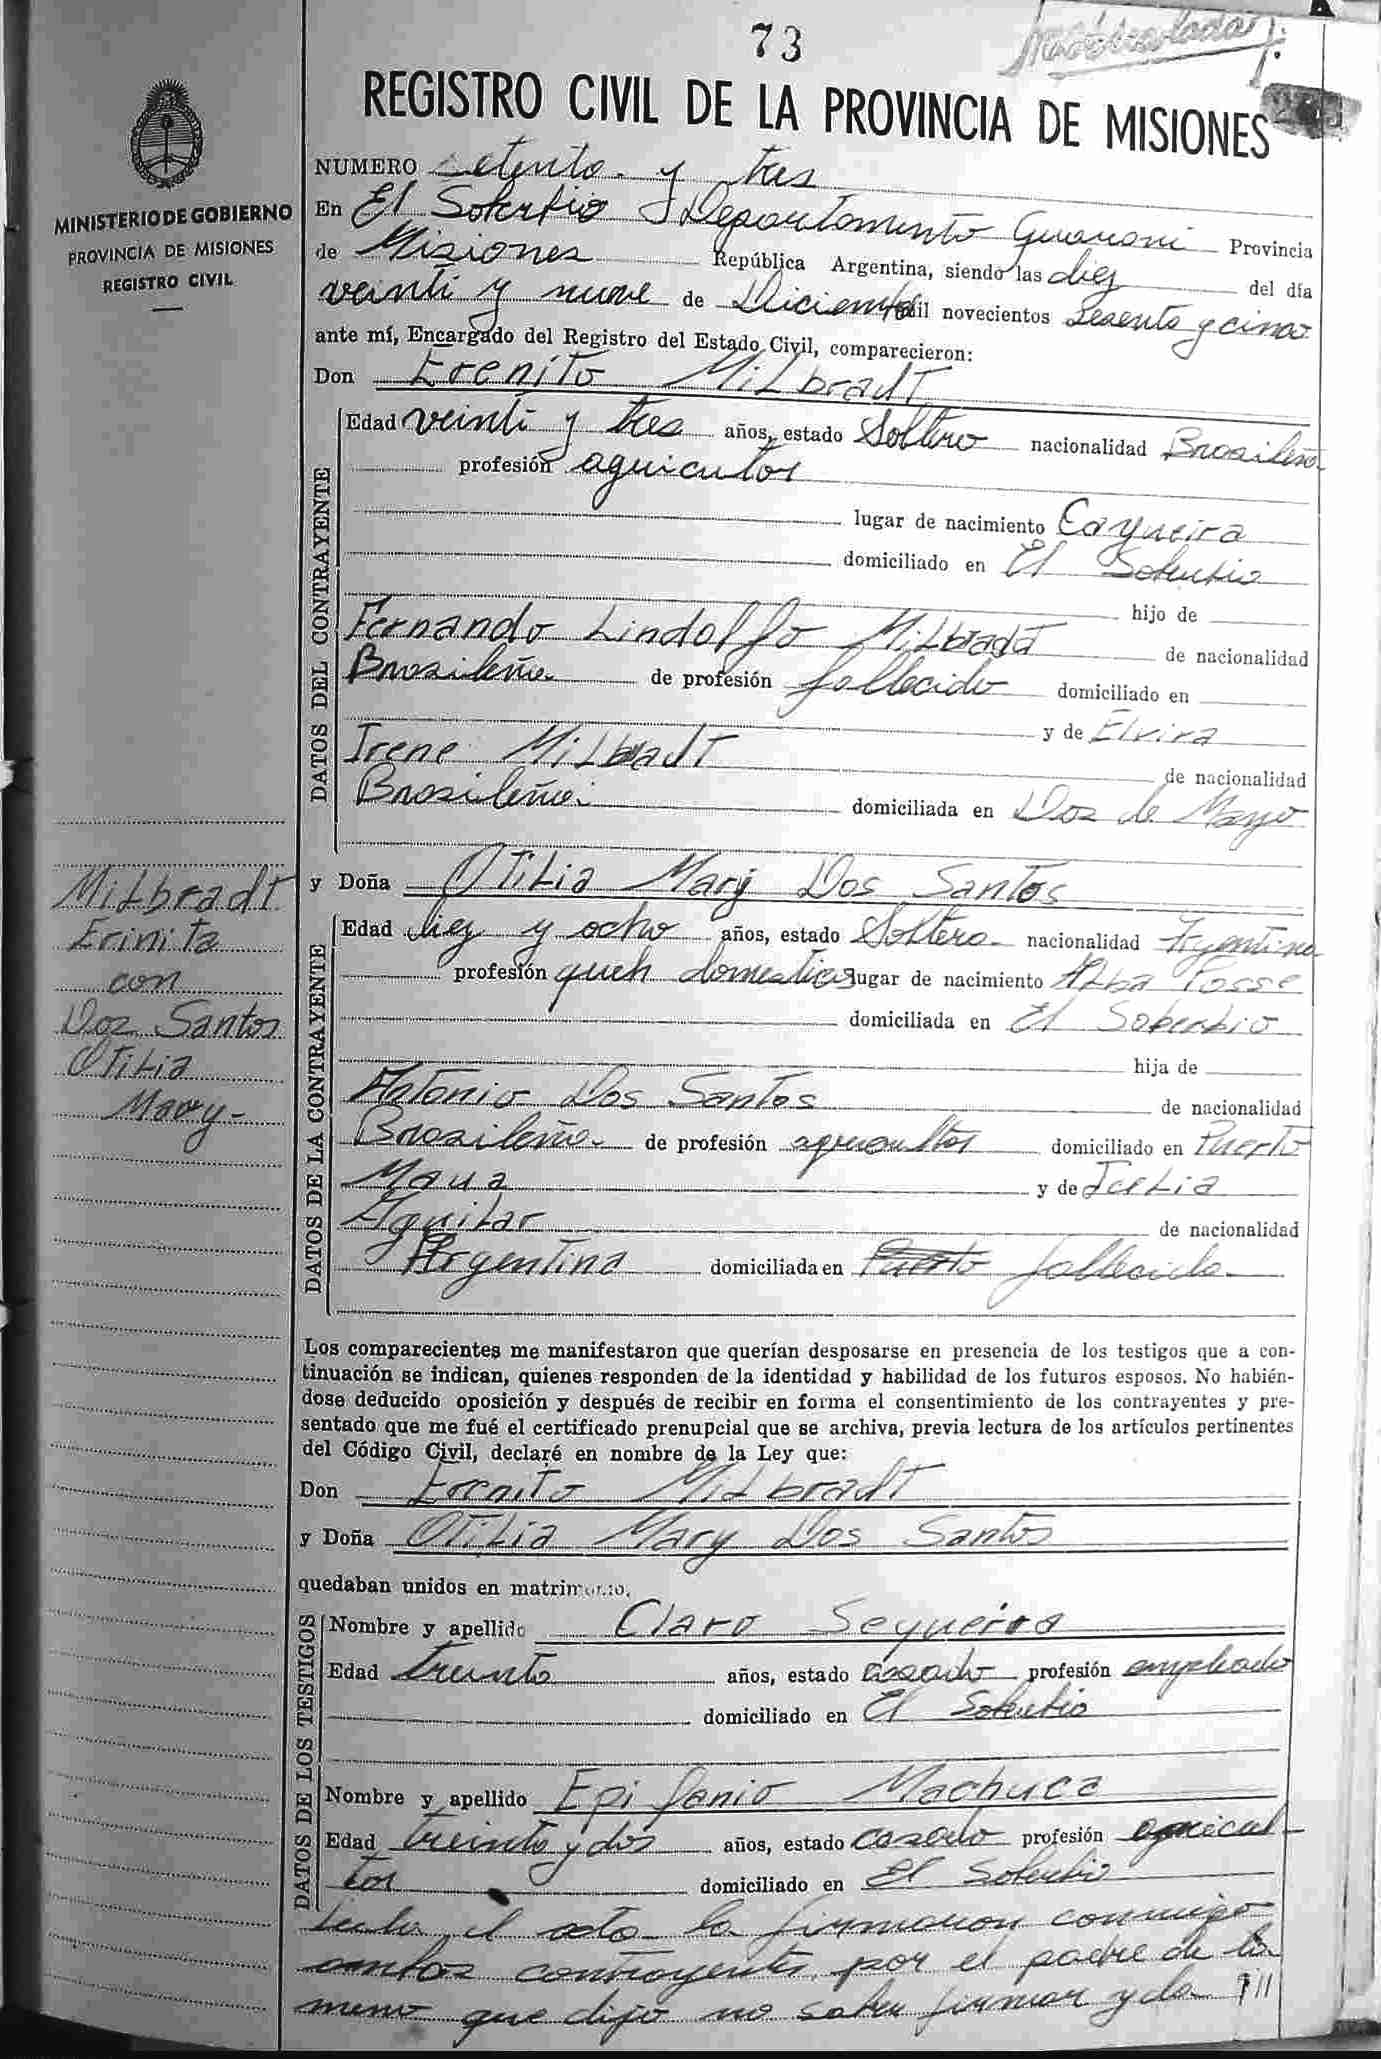 73
REGISTRO CIVIL DE LA PROVINCIA DE MISIONES
MINISTERIO DE GOBIERNO
PROVINCIA DE MISIONES
REGISTRO CIVIL
NUMERO Setenta y tres
En El Soberbio Departamento Guarani Provincia
de Misiones República Argentina, siendo las diez del día
veinti y nueve de Diciembre mil novecientos sesenta y cinco
ante mí, Encargado del Registro del Estado Civil, comparecieron:
Don Erenito Milbradt
DATOS DEL CONTRAYENTE
Edad veinti y tres años, estado Soltero nacionalidad Brasileña
profesión aguicultor
lugar de nacimiento
domiciliado en El Soberbio
hijo de
Fernando Lindolfo Milbradt de nacionalidad
Brasileña de profesión fallecido domiciliado en
y de Elvira
Irene Milbradt de nacionalidad
Brasileña domiciliada en Dos de Mayo
Milbradt
Erinita
con
Dos Santos
Otilia
Mary-
y Doña Otilia Mary Dos Santos
DATOS DE LA CONTRAYENTE
Edad diez y ocho años, estado Soltera nacionalidad Argentina
profesión queh domesticos lugar de nacimiento Alba Posse
domiciliada en El Soberbio
hija de
Antonio Dos Santos de nacionalidad
Brasileña de profesión agricultor domiciliado en Puerto
Maua y de Julia
Aguilar de nacionalidad
Argentina domiciliada en Puerto fallecida
Los comparecientes me manifestaron que querían desposarse en presencia de los testigos que a con-
tinuación se indican, quienes responden de la identidad y habilidad de los futuros esposos. No habién-
dose deducido oposición y después de recibir en forma el consentimiento de los contrayentes y pre-
sentado que me fué el certificado prenupcial que se archiva, previa lectura de los artículos pertinentes
del Código Civil, declaré en nombre de la Ley que:
Don Erenito Milbradt
y Doña Otilia Mary Dos Santos
quedaban unidos en matrimonio.
DATOS DE LOS TESTIGOS
Nombre y apellido Claro Sequeira
Edad treinta años, estado casado profesión empleado
domiciliado en El Soberbio
Nombre y apellido Epifanio Machuca
Edad treinta y dos años, estado casado profesión agricul-
tor domiciliado en El Soberbio
Leida el acta la firmaron conmigo
ambos contrayentes, por el padre de la
menor que dijo no saber firmar y da